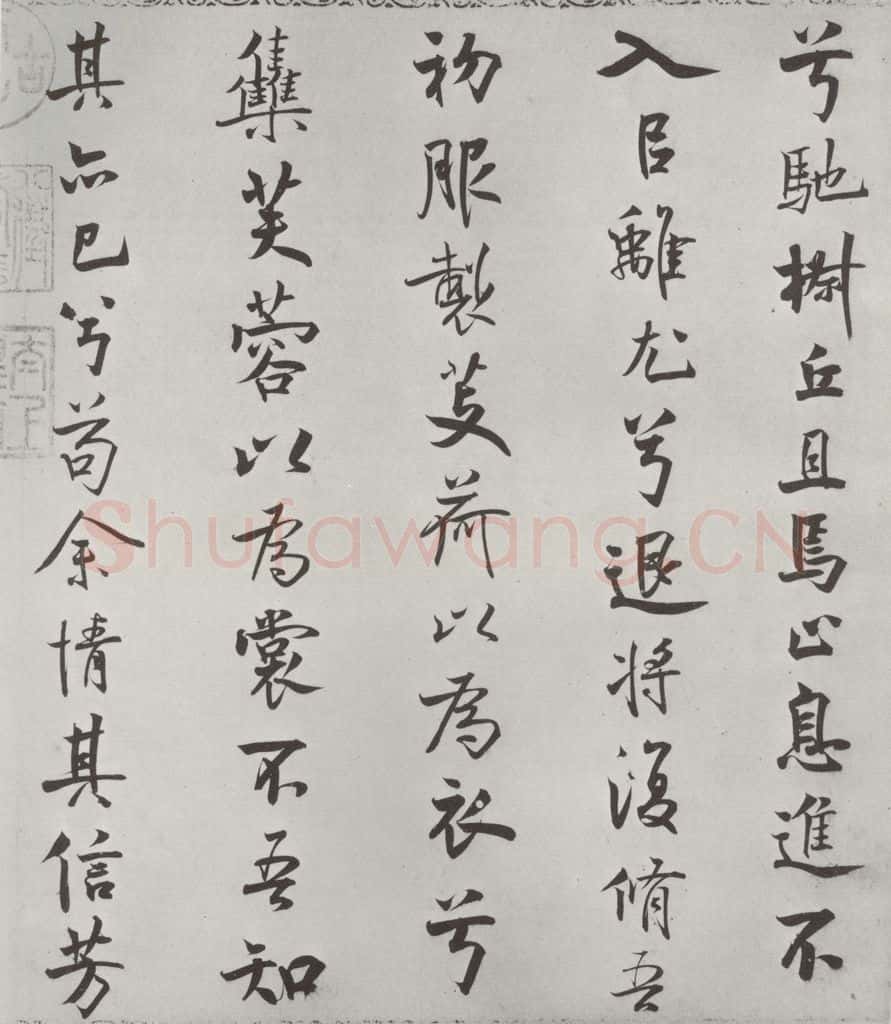 兮馳椒丘且焉止息進不
入㠯離尤兮退將復脩吾
初服製芰荷以為衣兮
雧芙蓉以為裳不吾知
其亦已兮苟余情其信芳
Shufawang.CN